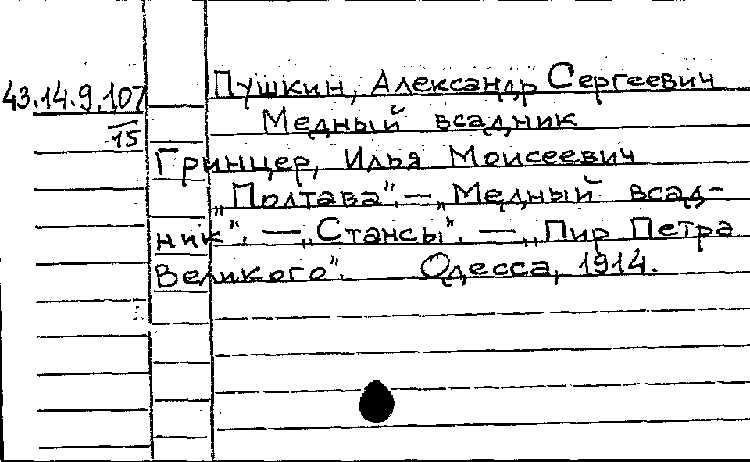 43.14.9.107
15
Пушкин, Александр Сергеевич
Медный всадник
Гринцер, Илья Моисеевич
„Полтава“. — „Медный всад-
ник“. — „Стансы“. — „Пир Петра
Великого“. Одесса, 1914.